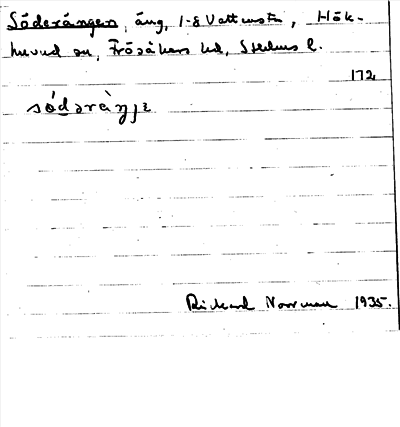 Söderängen, äng, 1-8 Vattensta, Hök-
huvud sn, Frösåkers hd, Sthlms l.
172
Rickard Norrman 1935.